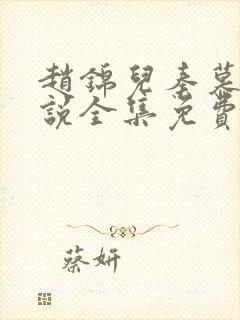 趙錦兒秦慕
說全集免費
蔡妍